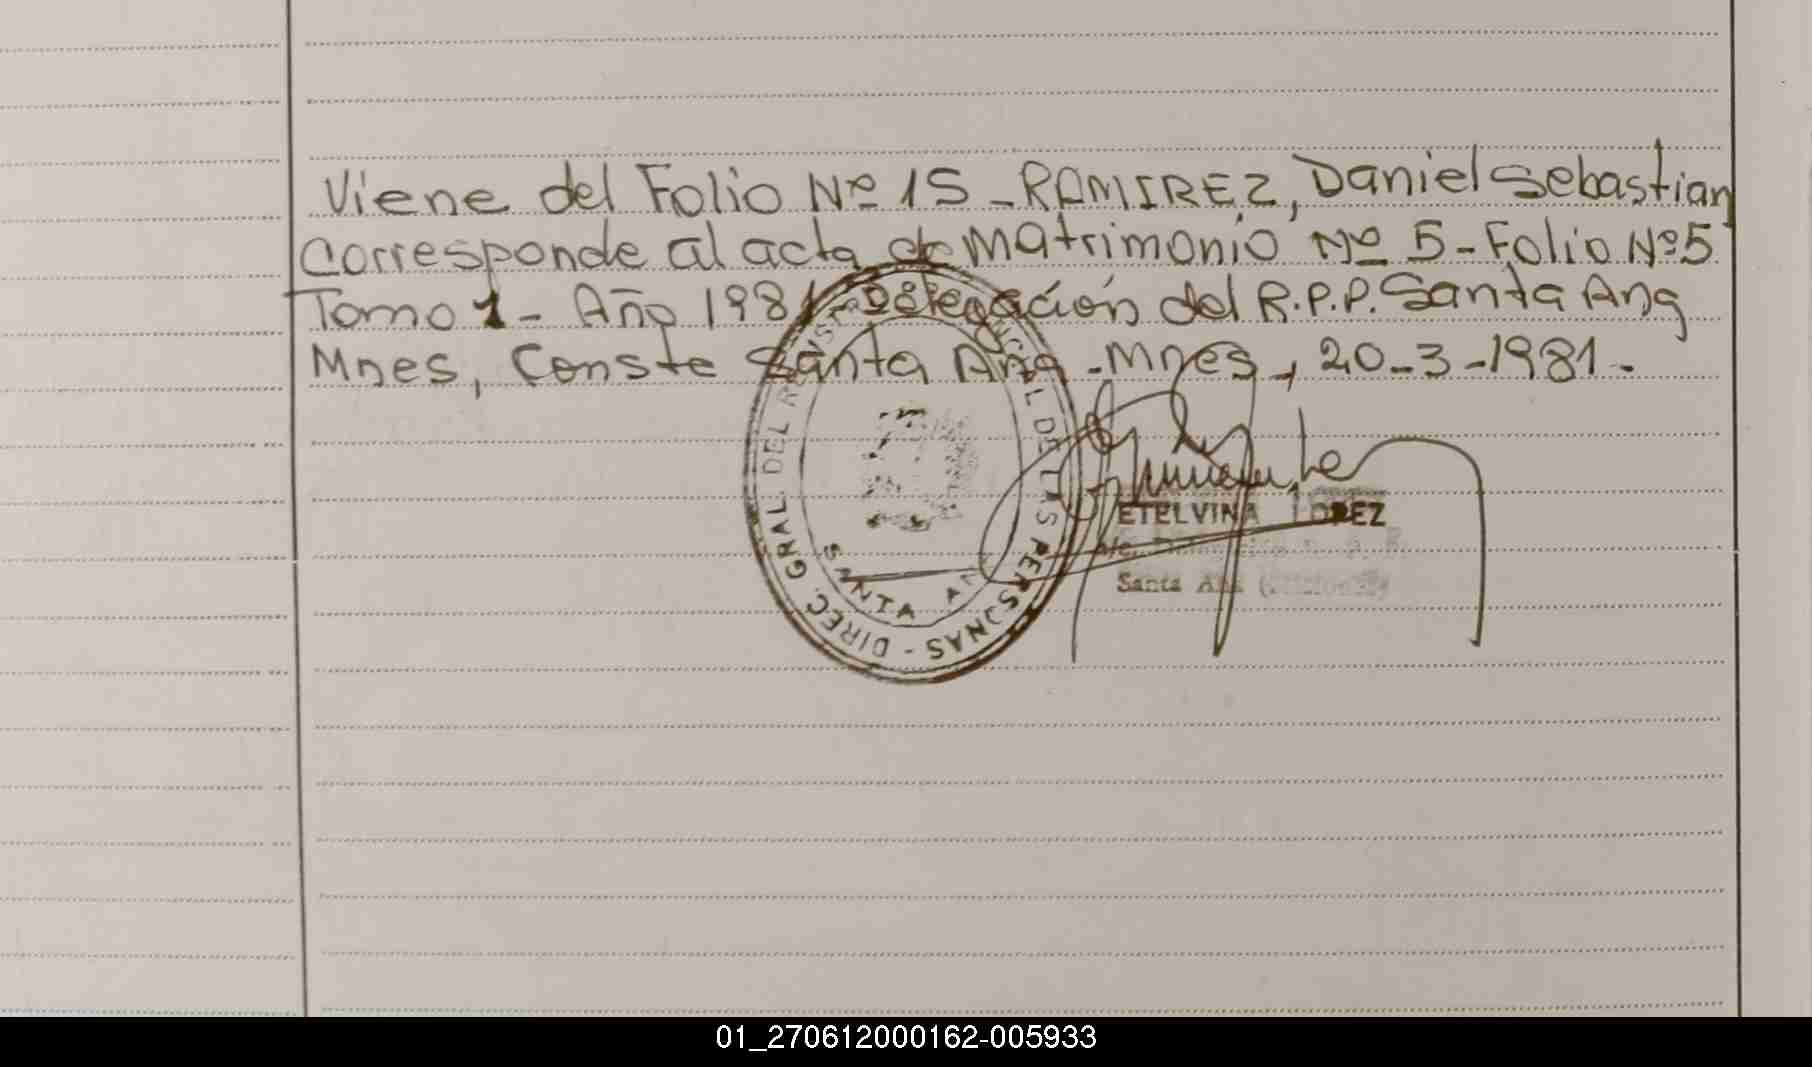 Viene del Folio Nº 15 - RAMIREZ, Daniel Sebastian
Corresponde al acta de Matrimonio Nº 5 - Folio Nº 5
Tomo 1 - Año 1981 - Delegación del R.P.P. Santa Ana
Mnes, Conste Santa Ana - Mnes, 20-3-1981.-
DIREC. GRAL. DEL DE LAS PERSONAS -
SANTA ANA
ETELVINA LOPEZ
Santa Ana (Misiones)
01_270612000162-005933